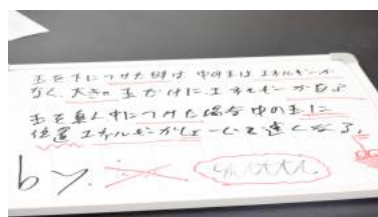 玉を下につけた時は 中の玉はエネルギーが
なく、大きの玉だけに、エネルギーがある
玉を真ん中につけた場合 中の玉に
位置エネルギーが生じて速くなる。
by.